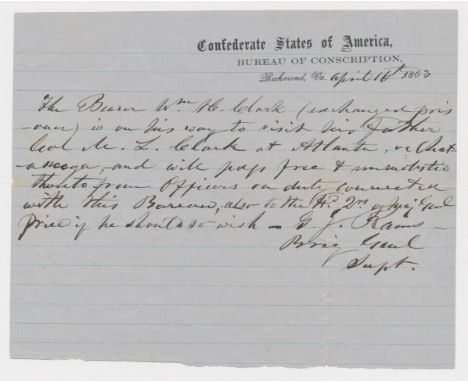 Confederate States of America,
BUREAU OF CONSCRIPTION,
Richmond, Va. April 16th 1863
The Bearer Wm H. Clark (exchanged pris
oner) is on his way to visit his father
Col M. L. Clark at Atlanta, or Chat
anooga, and will pass free & unmolested
from Officers on duty connected
with this Bureau, also to the Hd Qrs of Maj Genl
Price if he should so wish — G. J. Rains
Brig Genl
Supt.